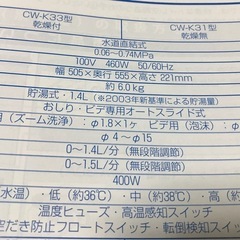 CW-K33型 CW-K31型
乾燥付 乾燥無
水道直結式
0.06～0.74MPa
100V 460W 50/60Hz
幅 505×奥行 555×高さ 221mm
約 6.0kg
貯湯式 1.4L (※2003年新基準による貯湯量)
おしり・ビデ専用オートスライド式
用(ズーム洗浄):φ1.8×1ヶ ビデ用(泡沫):φ
φ4～φ15
0～1.4L/分(無段階調節)
0～1.5L/分(無段階調節)
400W
水温)・低(約36℃)・中(約38℃)・高(
温度ヒューズ・高温感知スイッチ
空だき防止フロートスイッチ・転倒検知スイッチ